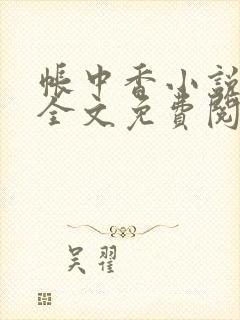 帐中香小说
全文免费阅
吴翟